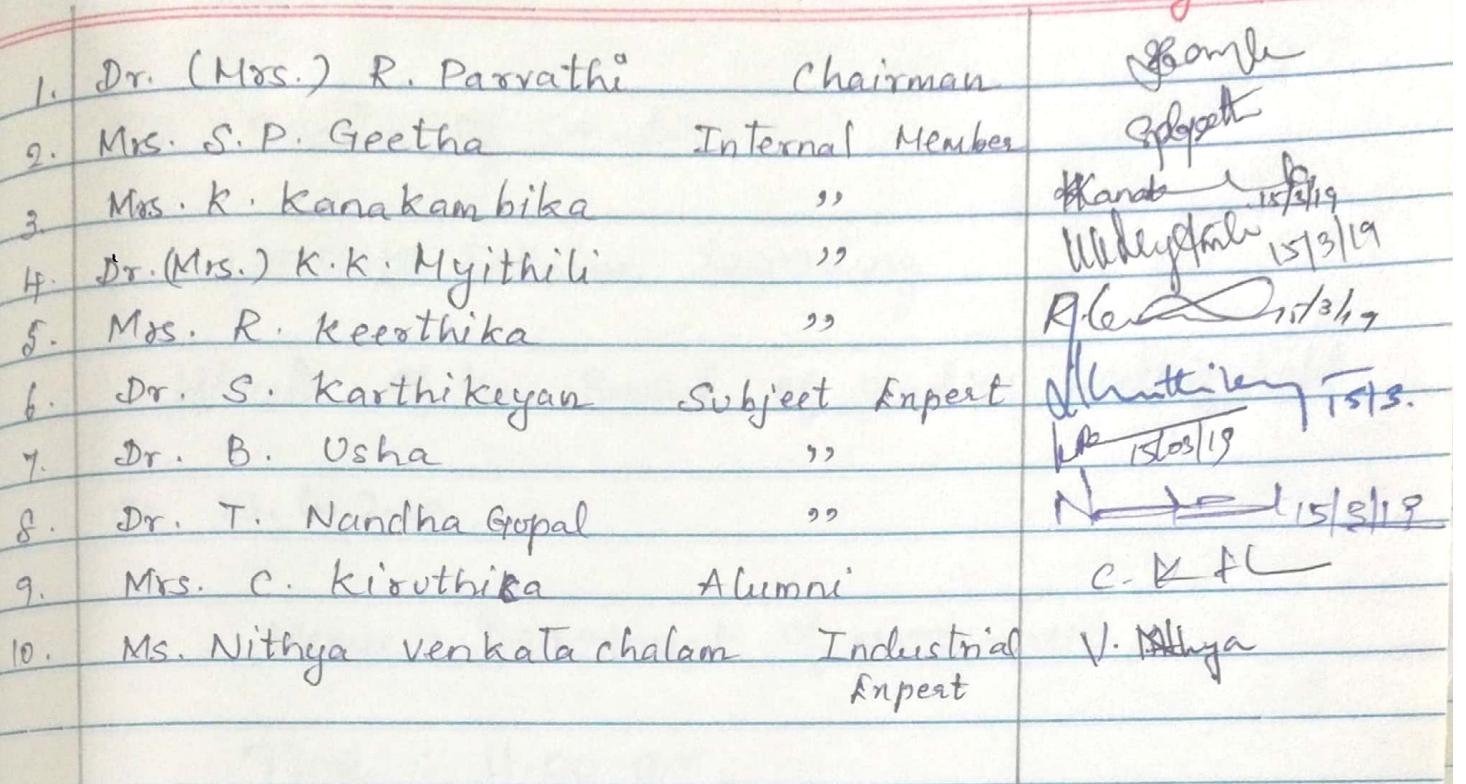 1. Dr. (Mrs.) R. Parvathi Chairman
2. Mrs. S. P. Geetha Internal Member
3. Mrs. K. Kanakambika ,,
15/3/19
4. Dr. (Mrs.) K. K. Myithili ,, 15/3/19
5. Mrs. R. Keerthika ,, 15/3/19
6. Dr. S. Karthikeyan Subject Expert 15/3.
7. Dr. B. Usha ,, 15/03/19
8. Dr. T. Nandha Gopal ,, 15/3/19
9. Mrs. C. Kiruthika Alumni C. K
10. Ms. Nithya Venkatachalam Industrial V. Nithya
Expert